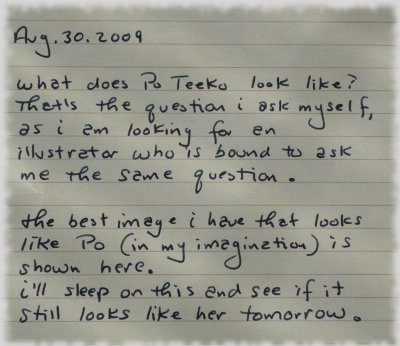 Aug.30.2009
what does Po Teeko look like?
That's the question i ask myself,
as i am looking for an
illustrator who is bound to ask
me the same question.
the best image i have that looks
like Po (in my imagination) is
shown here.
i'll sleep on this and see if it
still looks like her tomorrow.